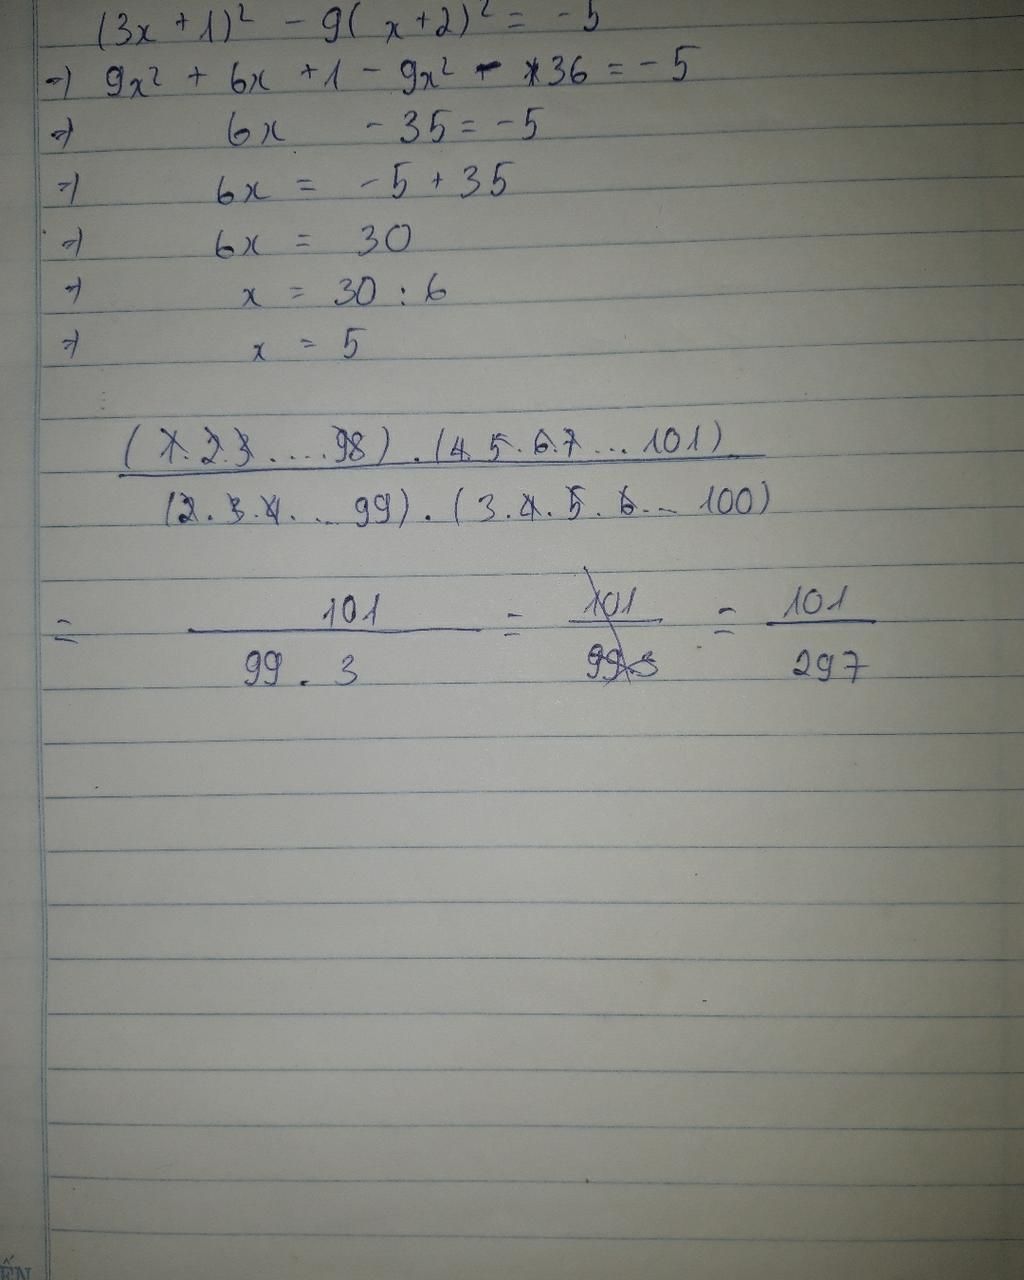 (3x + 1)² - 9(x+2)² = -5
=) 9x² + 6x + 1 - 9x² - 36 = -5
=) 6x - 35 = -5
=) 6x = -5 + 35
=) 6x = 30
=) x = 30 : 6
=) x = 5
(1.2.3....98).(4.5.6.7...101)
(2.3.4...99).(3.4.5.6... 100)
= 101 = 101 = 101
99 . 3 99.3 297
ẾN